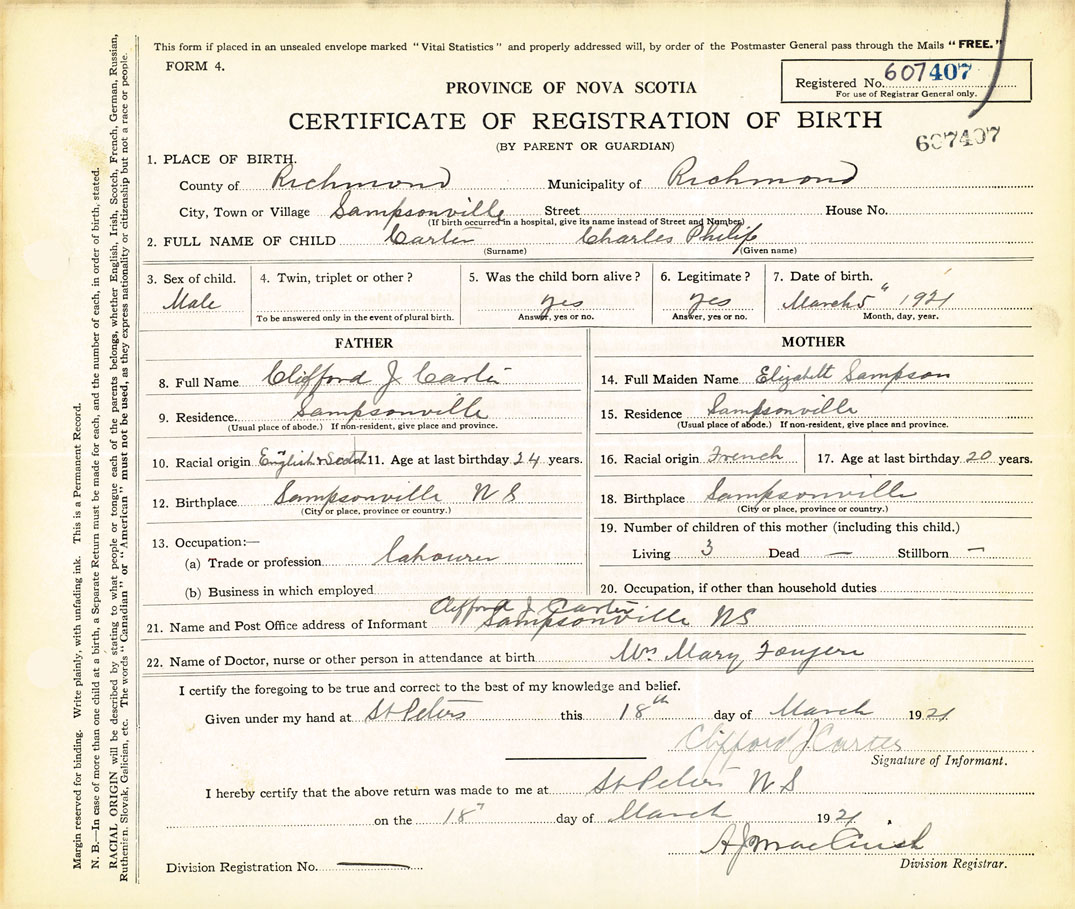 This form if placed in an unsealed envelope marked "Vital Statistics" and properly addressed will, by order of the Postmaster General pass through the Mails "FREE."
FORM 4.
Registered No. 607407
For use of Registrar General only.
PROVINCE OF NOVA SCOTIA
CERTIFICATE OF REGISTRATION OF BIRTH
607407
(BY PARENT OR GUARDIAN)
1. PLACE OF BIRTH.
County of Richmond Municipality of Richmond
City, Town or Village Sampsonville Street House No.
(If birth occurred in a hospital, give its name instead of Street and Number)
2. FULL NAME OF CHILD Carter Charles Philip
(Surname) (Given name)
3. Sex of child. 4. Twin, triplet or other? 5. Was the child born alive? 6. Legitimate? 7. Date of birth.
Male yes yes March 5" 1921
To be answered only in the event of plural birth. Answer, yes or no. Answer, yes or no. Month, day, year.
FATHER
8. Full Name Clifford J Carter
9. Residence Sampsonville
(Usual place of abode.) If non-resident, give place and province.
10. Racial origin English & Scotch 11. Age at last birthday 24 years.
12. Birthplace Sampsonville N S
(City or place, province or country.)
13. Occupation:—
(a) Trade or profession labourer
(b) Business in which employed
MOTHER
14. Full Maiden Name Elizabett Sampson
15. Residence Sampsonville
(Usual place of abode.) If non-resident, give place and province.
16. Racial origin French 17. Age at last birthday 20 years.
18. Birthplace Sampsonville
(City or place, province or country.)
19. Number of children of this mother (including this child.)
Living 3 Dead — Stillborn —
20. Occupation, if other than household duties
Clifford J Carter
21. Name and Post Office address of Informant Sampsonville NS
22. Name of Doctor, nurse or other person in attendance at birth Mrs Mary Fougere
I certify the foregoing to be true and correct to the best of my knowledge and belief.
Given under my hand at St Peters this 18th day of March 1921
Clifford J Carter
Signature of Informant.
I hereby certify that the above return was made to me at St Peters N S
on the 18" day of March 1921.
A J Mac
Division Registration No. —
Division Registrar.
Margin reserved for binding. Write plainly, with unfading ink. This is a Permanent Record.
N. B.—In case of more than one child at a birth, a Separate Return must be made for each, and the number of each, in order of birth, stated.
RACIAL ORIGIN will be described by stating to what people or tongue each of the parents belongs, whether English, Irish, Scotch, French, German, Russian,
Ruthenian, Slovak, Galician, etc. The words "Canadian" or "American" must not be used, as they express nationality or citizenship but not a race or people.